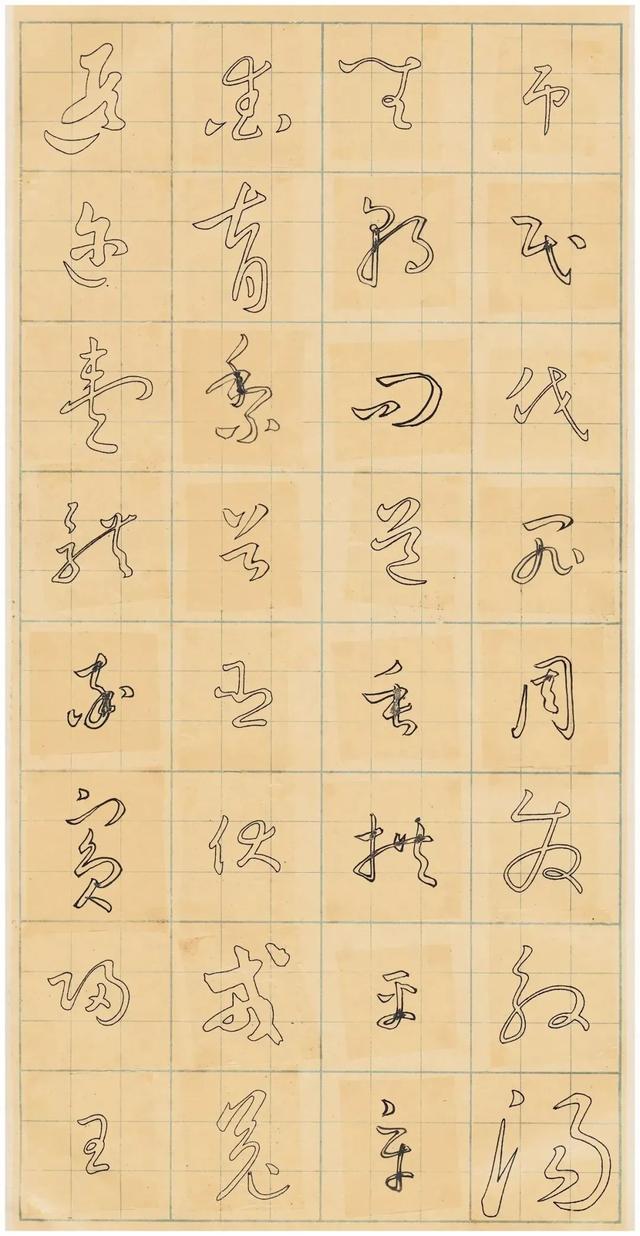 吊民伐罪周發殷湯
坐朝問道垂拱平章
愛育黎首臣伏戎羌
遐邇壹體率賓歸王